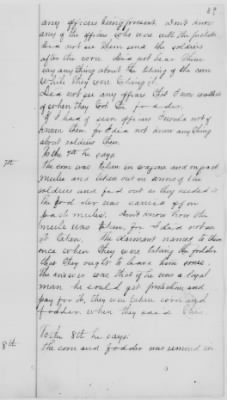 89
any officers being present. Don't know
any of the officers who were with the
did not see them and the soldiers
after the corn. Did not hear them
say anything about the taking of the corn
while they were taking it.
Did not see any officers that I now recollect
of when they Got the fodder.
If I had of seen officers I would not of
known them for I did not know anything
about soldiers then.
7th To the 7th he says
The corn was taken in wagons and on pack
mules and taken out in arms of the
soldiers and fed out as they needed it
The fodder was carried off on
pack mules. Don't know how the
mule was taken, for I did not see
it taken. The claimant named to them
once when they were taking the fodder
that they ought to leave him some.
the answer was that if he was a loyal
man he could get protection and
pay for it, they were taken corn and
fodder when they said this.
8th To the 8th he says
the corn and fodder was removed in